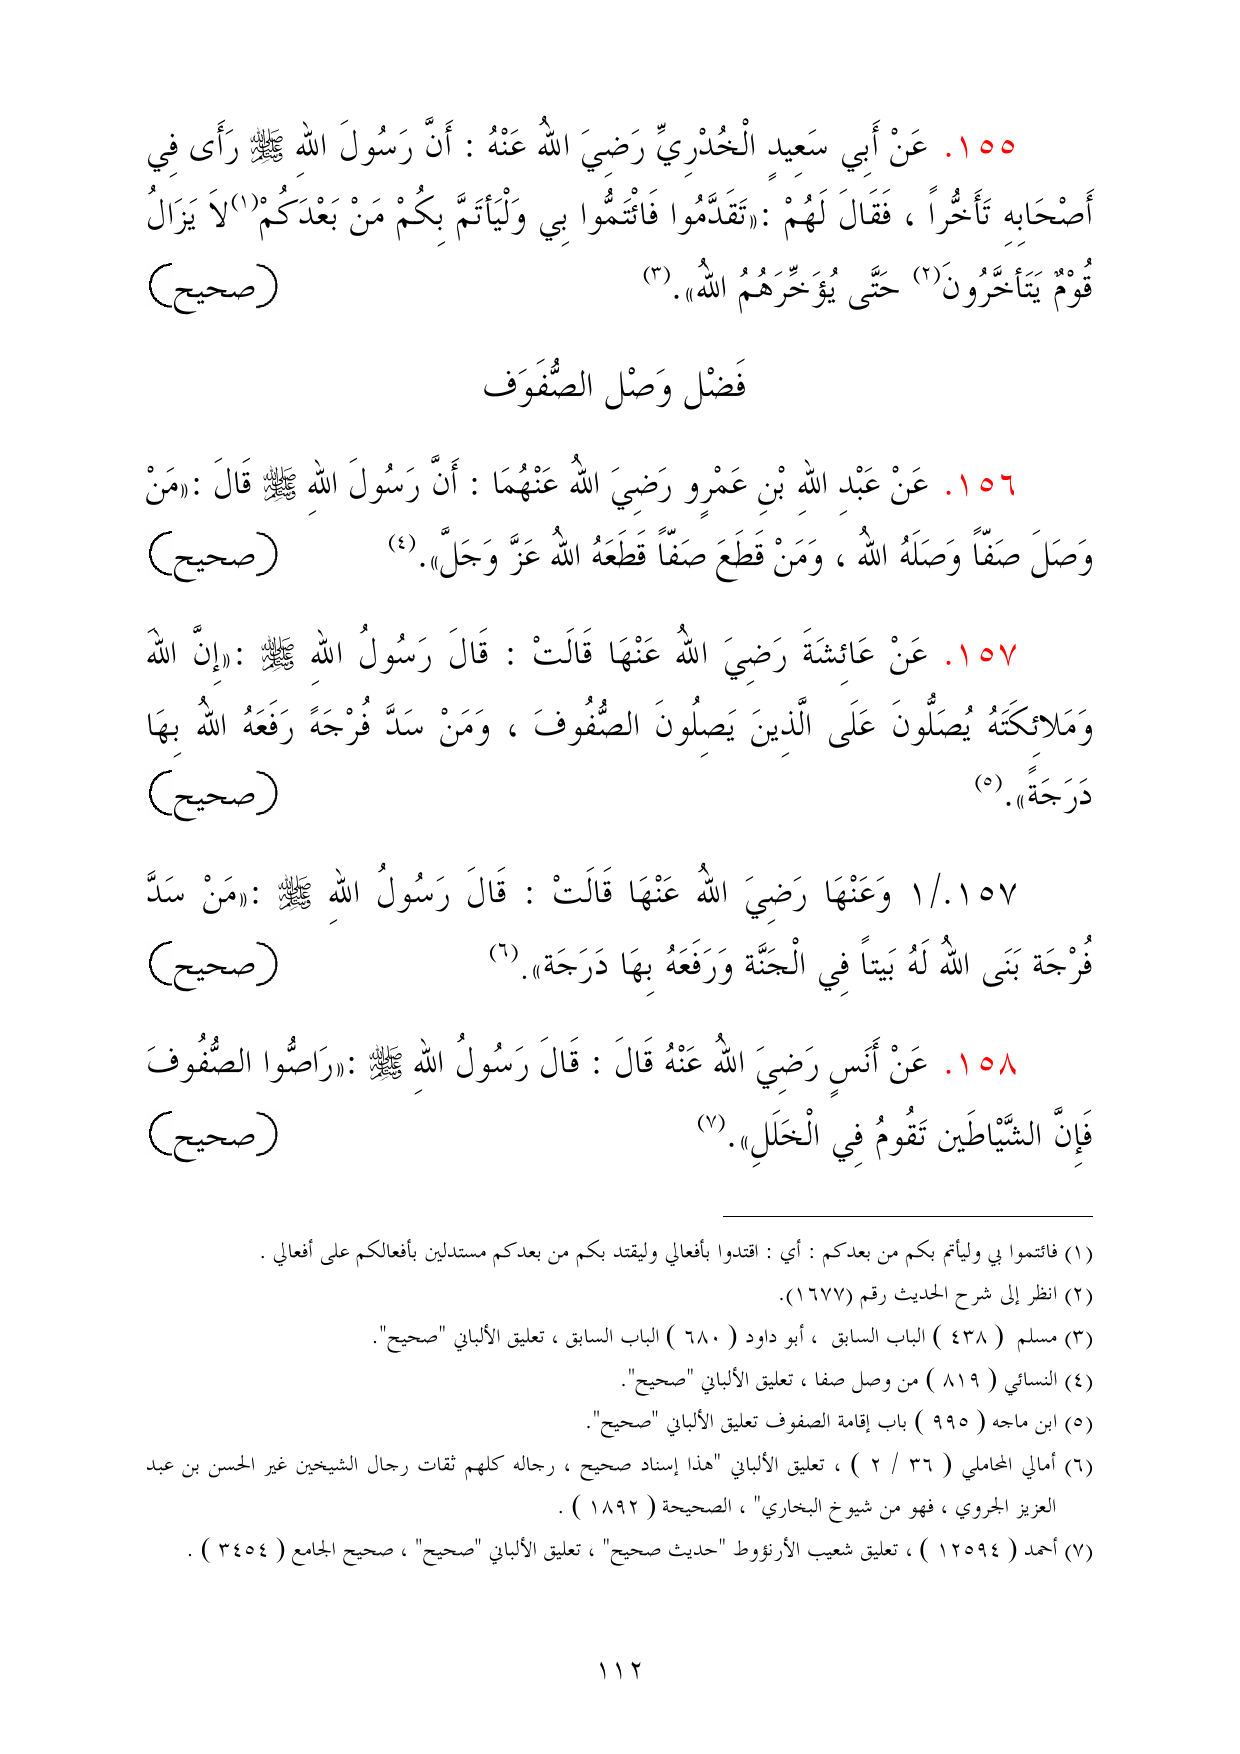 ١٥٥. عَنْ أَبِي سَعِيدٍ الْخُدْرِيِّ رَضِيَ اللهُ عَنْهُ : أَنَّ رَسُولَ اللهِ ﷺ رَأَى فِي
أَصْحَابِهِ تَأَخُّراً ، فَقَالَ لَهُمْ :«تَقَدَّمُوا فَائْتَمُّوا بِي وَلْيَأتَمَّ بِكُمْ مَنْ بَعْدَكُمْ(١)لاَ يَزَالُ
قُوْمٌ يَتَأخَّرُونَ(٢) حَتَّى يُؤَخِّرَهُمُ اللهُ».(٣) (صحيح)
فَضْل وَصْل الصُّفَوَف
١٥٦. عَنْ عَبْدِ اللهِ بْنِ عَمْرٍو رَضِيَ اللهُ عَنْهُمَا : أَنَّ رَسُولَ اللهِ ﷺ قَالَ :«مَنْ
وَصَلَ صَفّاً وَصَلَهُ اللهُ ، وَمَنْ قَطَعَ صَفّاً قَطَعَهُ اللهُ عَزَّ وَجَلَّ».(٤) (صحيح)
١٥٧. عَنْ عَائِشَةَ رَضِيَ اللهُ عَنْهَا قَالَتْ : قَالَ رَسُولُ اللهِ ﷺ :«إِنَّ اللهَ
وَمَلائِكَتَهُ يُصَلُّونَ عَلَى الَّذِينَ يَصِلُونَ الصُّفُوفَ ، وَمَنْ سَدَّ فُرْجَهً رَفَعَهُ اللهُ بِهَا
دَرَجَةً».(٥) (صحيح)
١/.١٥٧ وَعَنْهَا رَضِيَ اللهُ عَنْهَا قَالَتْ : قَالَ رَسُولُ اللهِ ﷺ :«مَنْ سَدَّ
فُرْجَة بَنَى اللهُ لَهُ بَيتاً فِي الْجَنَّة وَرَفَعَهُ بِهَا دَرَجَة».(٦) (صحيح)
١٥٨. عَنْ أَنَسٍ رَضِيَ اللهُ عَنْهُ قَالَ : قَالَ رَسُولُ اللهِ ﷺ :«رَاصُّوا الصُّفُوفَ
فَإِنَّ الشَّيْاطَين تَقُومُ فِي الْخَلَلِ».(٧) (صحيح)
(١) فائتموا بي وليأتم بكم من بعدكم : أي : اقتدوا بأفعالي وليقتد بكم من بعدكم مستدلين بأفعالكم على أفعالي .
(٢) انظر إلى شرح الحديث رقم (١٦٧٧).
(٣) مسلم ( ٤٣٨ ) الباب السابق ، أبو داود ( ٦٨٠ ) الباب السابق ، تعليق الألباني "صحيح".
(٤) النسائي ( ٨١٩ ) من وصل صفا ، تعليق الألباني "صحيح".
(٥) ابن ماجه ( ٩٩٥ ) باب إقامة الصفوف تعليق الألباني "صحيح".
(٦) أمالي المحاملي ( ٣٦ / ٢ ) ، تعليق الألباني "هذا إسناد صحيح ، رجاله كلهم ثقات رجال الشيخين غير الحسن بن عبد
العزيز الجروي ، فهو من شيوخ البخاري" ، الصحيحة ( ١٨٩٢ ) .
(٧) أحمد ( ١٢٥٩٤ ) ، تعليق شعيب الأرنؤوط "حديث صحيح" ، تعليق الألباني "صحيح" ، صحيح الجامع ( ٣٤٥٤ ) .
١١٢